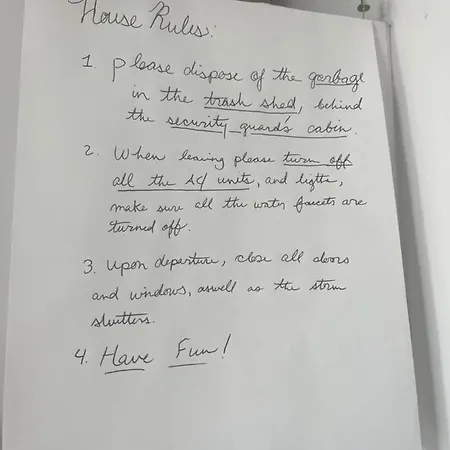 House Rules:
1. Please dispose of the garbage
in the trash shed, behind
the security guard's cabin.
2. When leaving please turn off
all the AC units, and lights,
make sure all the water faucets are
turned off.
3. Upon departure, close all doors
and windows, aswell as the storm
shutters.
4. Have Fun!